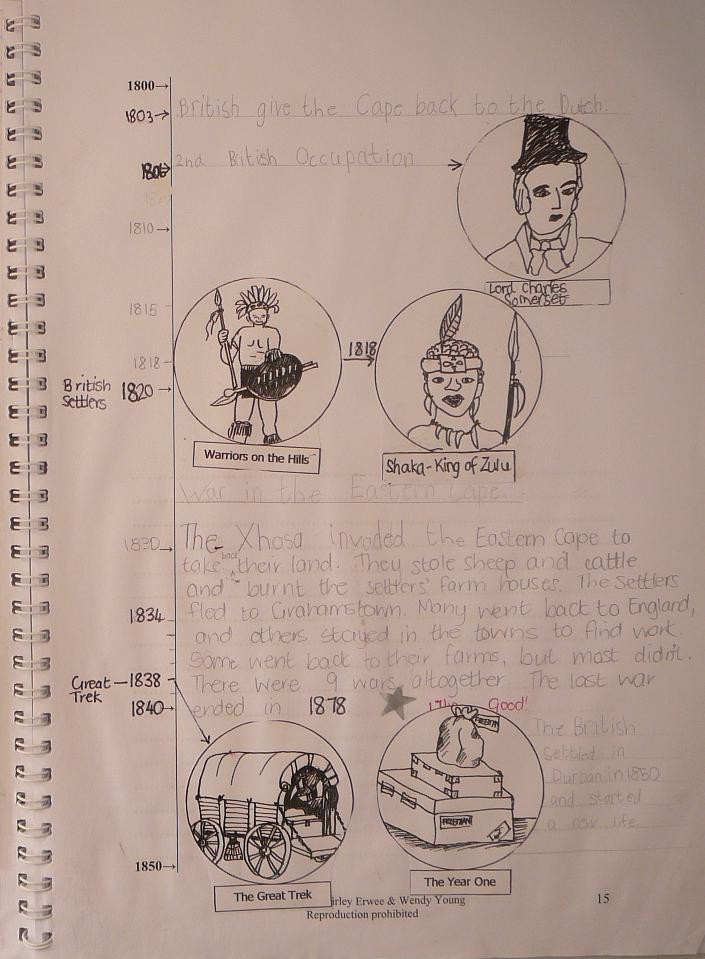 1800
1803 British give the Cape back to the Dutch.
1806 2nd British Occupation
1810
Lord Charles
Somerset
1815
1818
1818
British
Settlers 1820
Warriors on the Hills
Shaka-King of Zulu
War in the Eastern Cape.
1830 The Xhosa invaded the Eastern Cape to
take back their land. They stole sheep and cattle
and burnt the settlers' farm houses. The Settlers
1834 fled to Grahamstown. Many went back to England,
and others stayed in the towns to find work.
Some went back to their farms, but most didn't.
Great
Trek 1838 There were 9 wars altogether. The last war
1840 ended in 1878
Good!
FREEMAN
The British
Settled in
Durban in 1850
and started
a new life
FREEMAN
1850
The Great Trek
The Year One
irley Erwee & Wendy Young
Reproduction prohibited
15